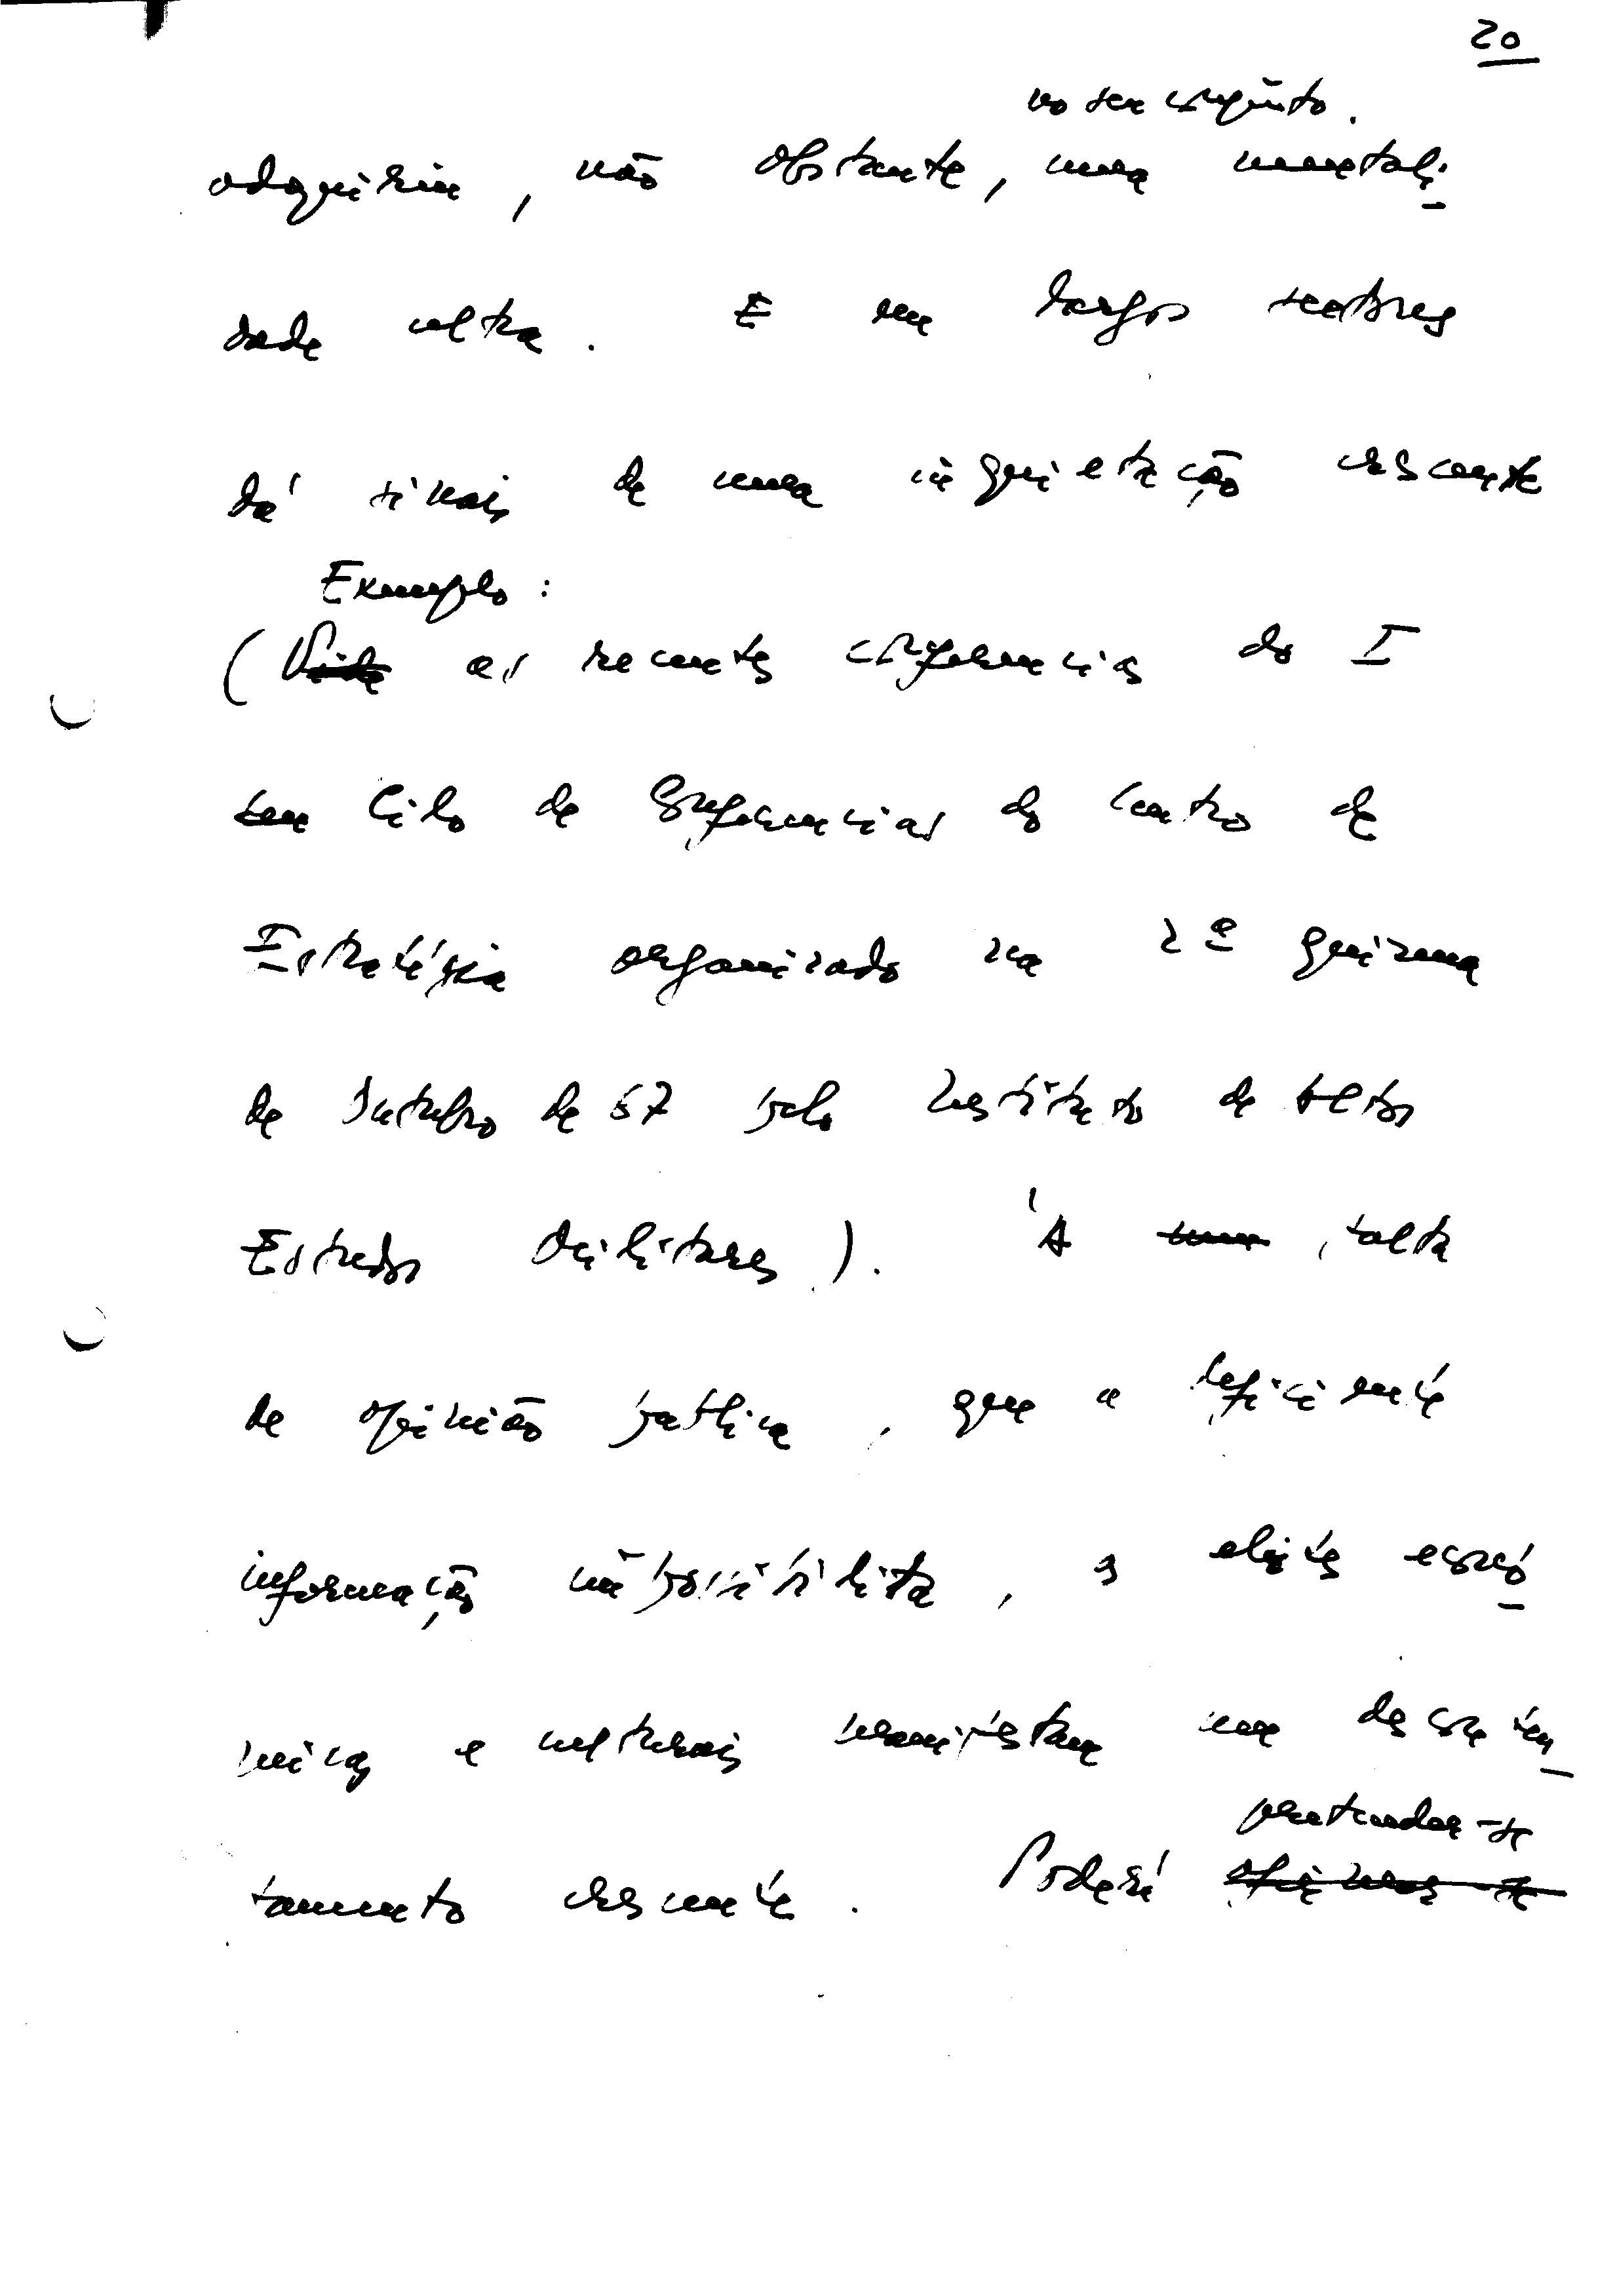 20
no seu conjunto.
adquirir, não obstante, uma mentali-
dade culta. E em largos sectores
dá sinais de uma inquietação crescente
Exemplo:
(Vide as recentes conferencias do I
Ciclo de Conferencias do Centro de
Estratégia organizado na 2ª quinzena
de Outubro de 67 pelo Instituto de Altos
Estudos Militares). À falta
de opinião publica, que a deficiente
informação impossibilita, as elites econó-
micas e culturais manifestam um descon-
tentamento crescente. Poderá pretender-se